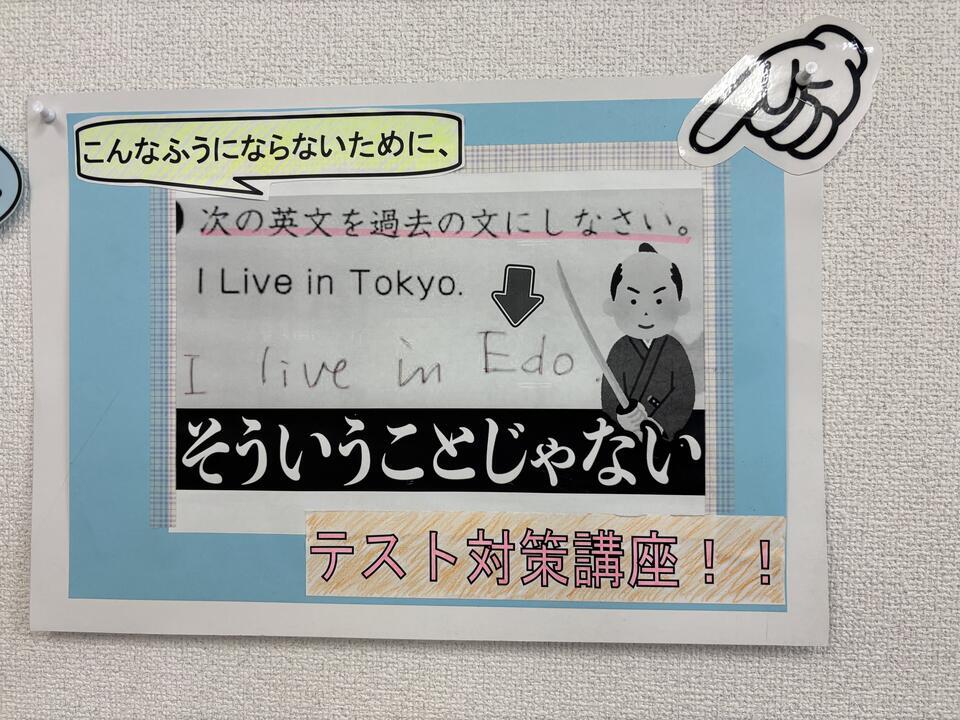 こんなふうにならないために、
次の英文を過去の文にしなさい。
I Live in Tokyo.
I live in Edo.
そういうことじゃない
テスト対策講座！！